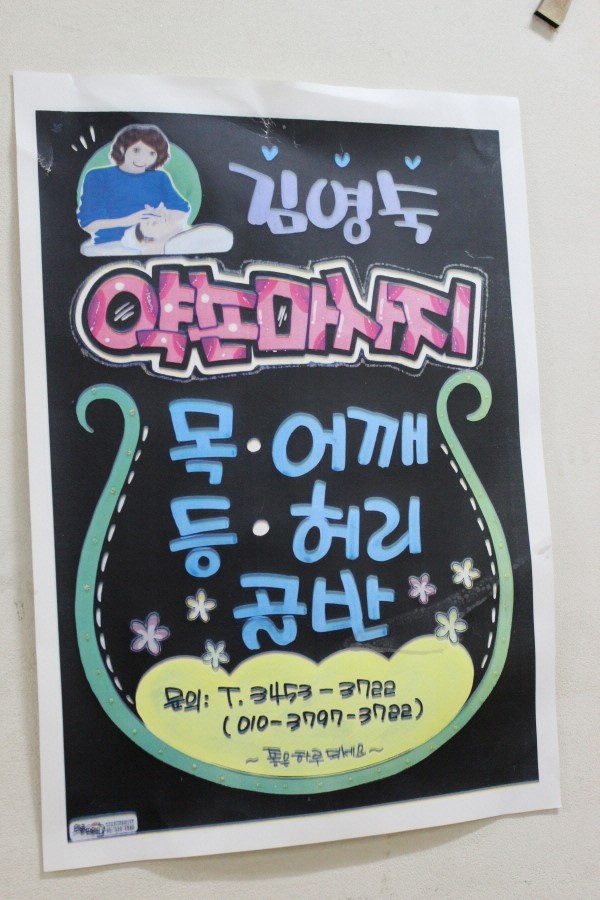 김영숙
약손마사지
목·어깨
등·허리
골반
문의: T. 3453-3722
(010-3797-3722)
~좋은하루 되세요~